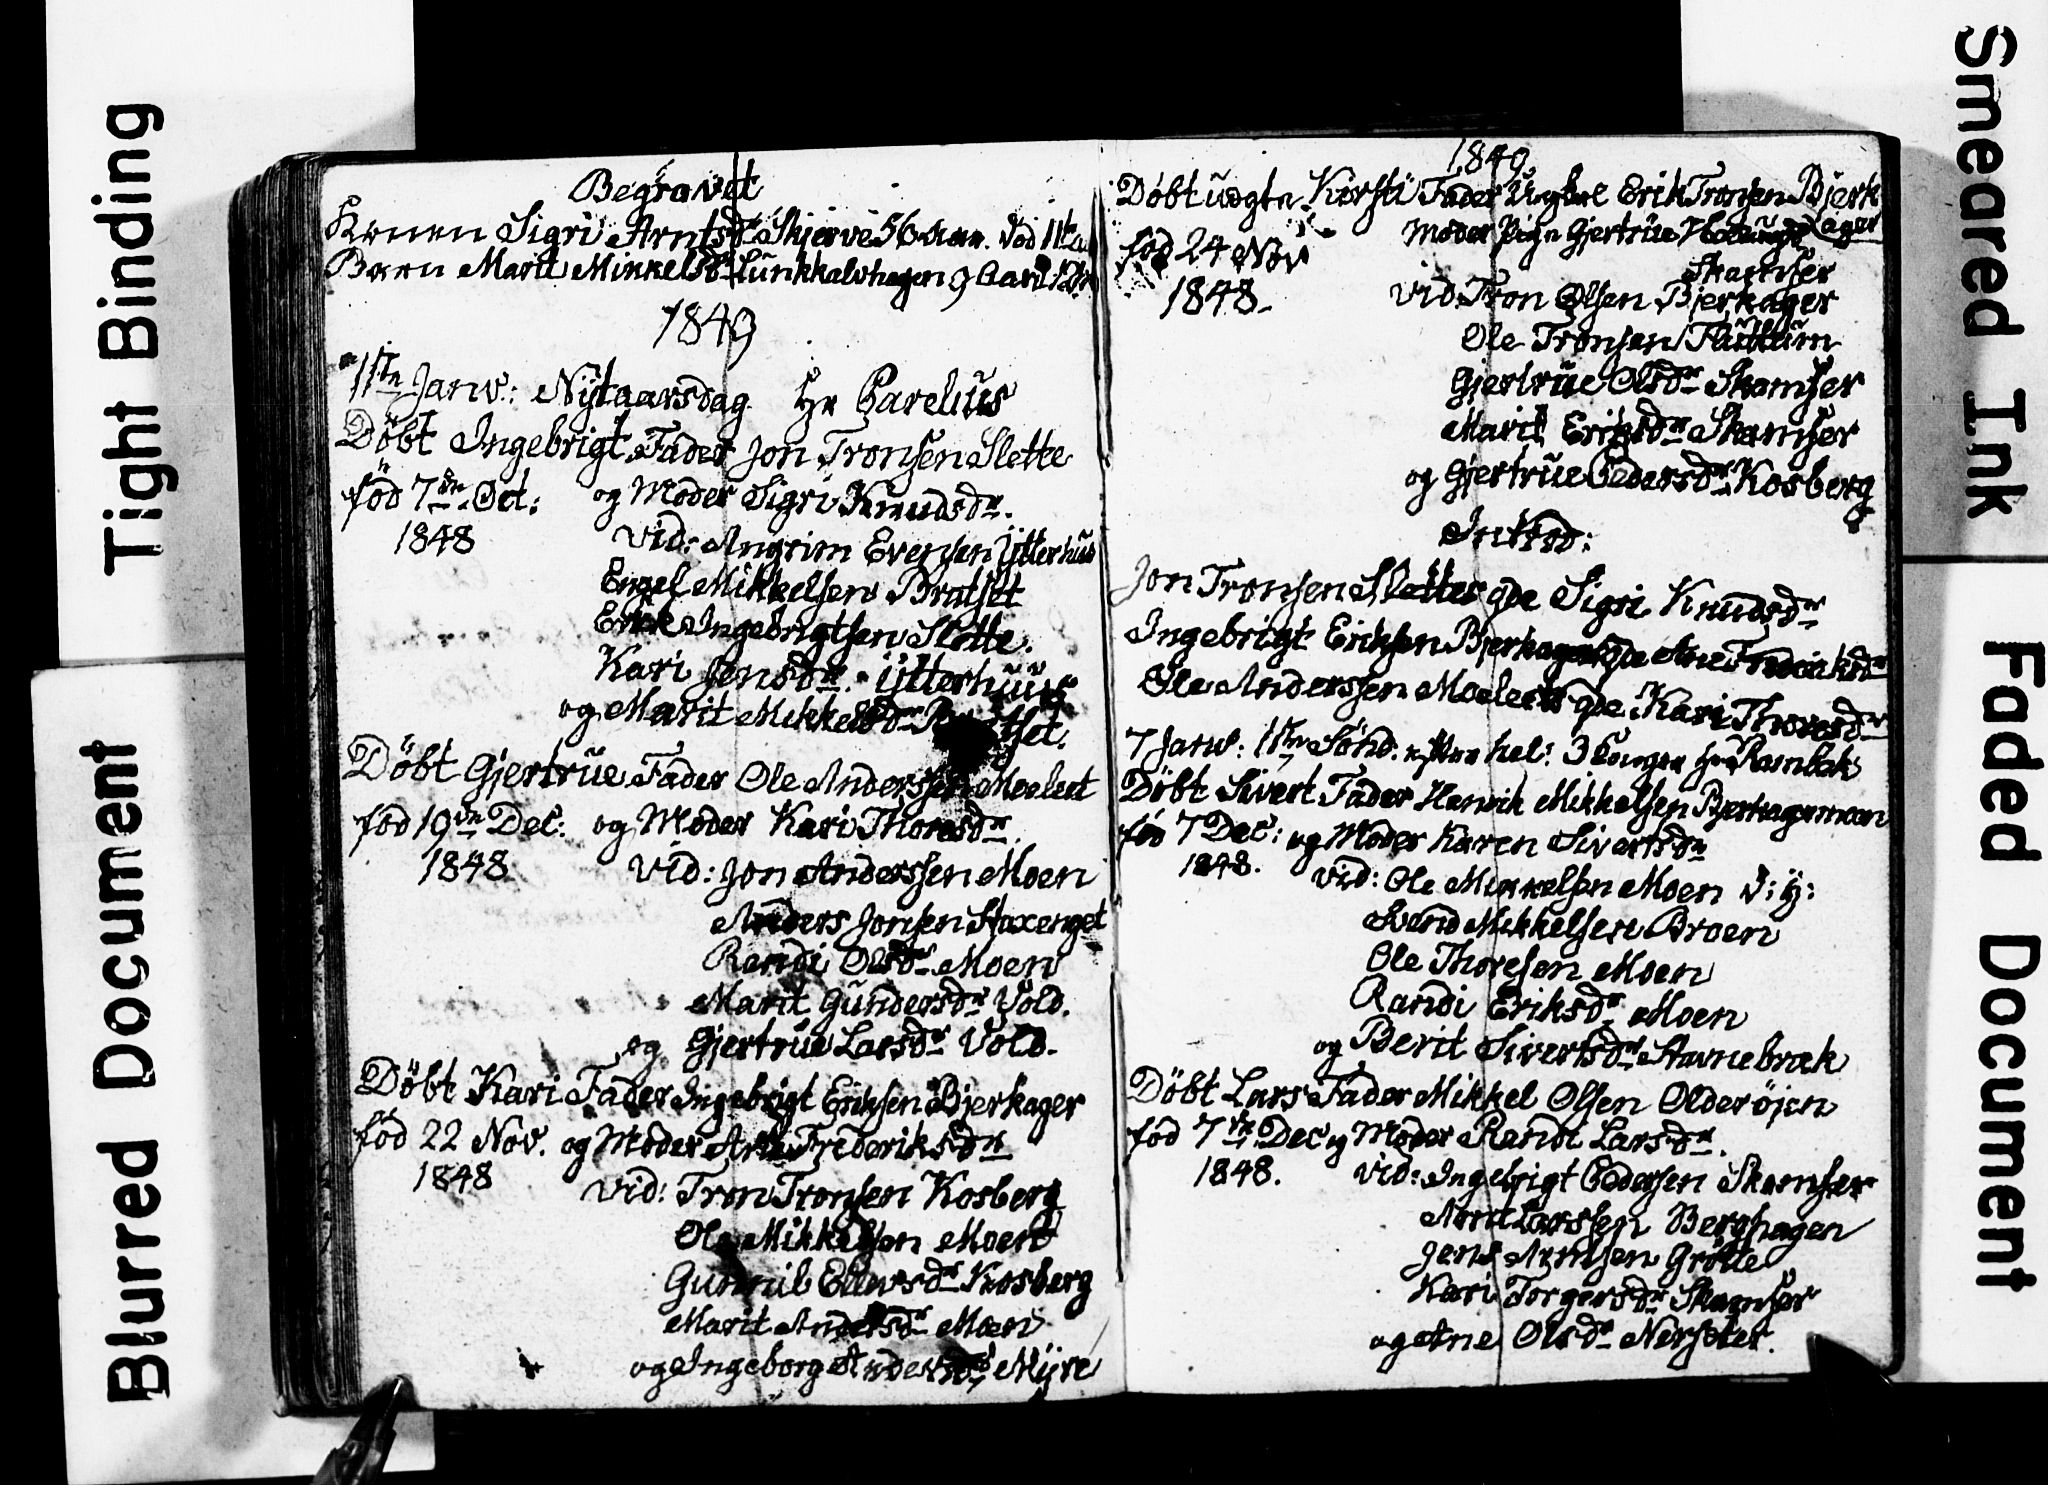 Tight Binding
Blurred Document
Smeared Ink
Faded Document
Begravet
Konen Sigri Arntsdr Skjerve 56 Aar. død 11te
Barn Marit Mikkelsdr Lunkkalvhagen 9 Aar
1849
1ste Janv: Nÿtaarsdag Hr Parelius
Döbt Ingebrigt Fader Jon Tronsen Slette
föd 7de Oct: og Moder Sigri Knudsdr.
1848 Vid: Angrim Evensen Ÿtterhus
Engel Mikkelsen Bratset
Erik Ingebrigtsen Slette.
Kari Jensdr. Ÿtterhuus
og Marit Mikkelsdr Bratset.
Döbt Gjertrüe Fader Ole Anderssen Moeleet
föd 19de Dec: og Moder Kari Thoresdr.
1848 Vid: Jon Anderssen Moen
Anders Jonsen Staxenget
Randi Olsdr Moen
Marit Gundersdr Vold.
og Gjertrüe Larsdr Vold.
Döbt Kari Fader Ingebrigt Eriksen Bjerkager
föd 22 Nov. og Moder Ane Frederiksdr
1848 Vid: Tron Tronsen Kosberg
Ole Mikkelsen Moen
Gunnil Ellevsdr Kosberg
Marit Andersdr Moen
og Ingeborg Andersdr Mÿre
1849
Döbt udgta Kirsti Fader Ungkarl Erik Tronsen Bjerk
föd 24 Nov Moder Pign Gjertrüe ager
Skamfer
1848. Vid: Tron Olsen Bjerkager
Ole Tronsen Flüttüm
Gjertrüe Olsdr Skamfer
Marit Eriksdr Skamfer
og Gjertrüe Pedersdr Kosberg
Introd:
Jon Tronsen Slettes gde Sigri Knudsdr
Ingebrigt Eriksen Bjerkagers gde Ane Frederiksdr
Ole Anderssen Moeleets gde Kari Thoresdr
7 Janv: 1ste Sönd. efter hel: 3 Konger Hr Rambek
Döbt Sivert Fader Henrik Mikkelsen Bjerkagermoen
föd 7 Dec: og Moder Karen Sivertsdr
1848. Vid: Ole Mikkelsen Moen d: ÿ:
Svend Mikkelsen Broen
Ole Thoresen Moen
Randi Eriksdr Moen
og Berit Sivertsdr Stavnebræk
Döbt Lars Fader Mikkel Olsen Olderöjen
föd 7de Dec og Moder Randi Larsdr.
1848. Vid: Ingebrigt Pedersen Skamfer
Arnt Larssen Berghagen
Jens Arntsen Grötte
Kari Torgersdr Skamfer
og Ane Olsdr Nerseter.